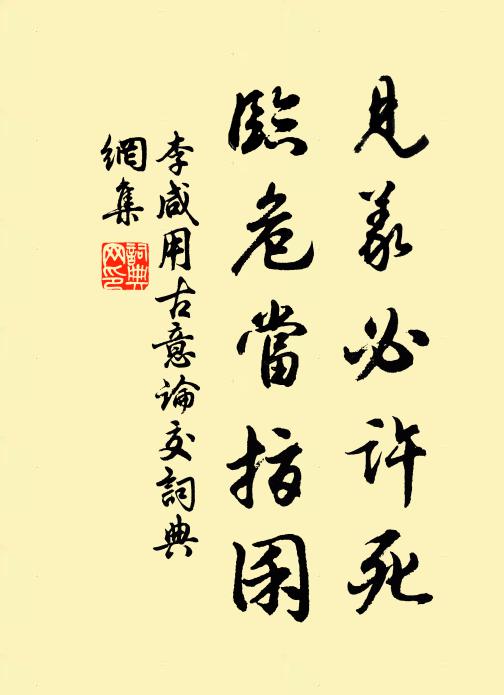 見義必許死
臨危當指囷
李咸用古意論交詞典
網集
詞典
网印